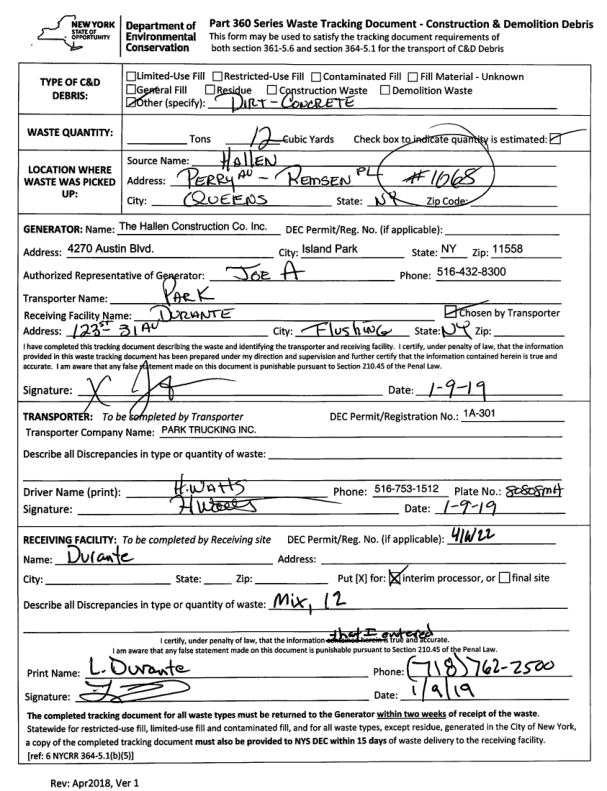 NEW YORK STATE OF OPPORTUNITY
Department of Environmental Conservation
Part 360 Series Waste Tracking Document - Construction & Demolition Debris
This form may be used to satisfy the tracking document requirements of
both section 361-5.6 and section 364-5.1 for the transport of C&D Debris
TYPE OF C&D DEBRIS:
Limited-Use Fill Restricted-Use Fill Contaminated Fill Fill Material - Unknown
General Fill Residue Construction Waste Demolition Waste
Other (specify): DIRT-CONCRETE
WASTE QUANTITY: Tons 12 Cubic Yards Check box to indicate quantity is estimated:
LOCATION WHERE WASTE WAS PICKED UP:
Source Name: HAllEN
Address: PERRY AV - REMSEN PL #1068
City: QUEENS State: NY Zip Code:
GENERATOR: Name: The Hallen Construction Co. Inc. DEC Permit/Reg. No. (if applicable):
Address: 4270 Austin Blvd. City: Island Park State: NY Zip: 11558
Authorized Representative of Generator: JOE A Phone: 516-432-8300
Transporter Name: PARK
Receiving Facility Name: DURANTE Chosen by Transporter
Address: 123ST 31 AV City: Flushing State: NY Zip:
I have completed this tracking document describing the waste and identifying the transporter and receiving facility. I certify, under penalty of law, that the information
provided in this waste tracking document has been prepared under my direction and supervision and further certify that the information contained herein is true and
accurate. I am aware that any false statement made on this document is punishable pursuant to Section 210.45 of the Penal Law.
Signature: X Date: 1-9-19
TRANSPORTER: To be completed by Transporter DEC Permit/Registration No.: 1A-301
Transporter Company Name: PARK TRUCKING INC.
Describe all Discrepancies in type or quantity of waste:
Driver Name (print): H.WATTS Phone: 516-753-1512 Plate No.: 80805MA
Signature: Date: 1-9-19
RECEIVING FACILITY: To be completed by Receiving site DEC Permit/Reg. No. (if applicable): 41W22
Name: Durante Address:
City: State: Zip: Put [X] for: X interim processor, or final site
Describe all Discrepancies in type or quantity of waste: Mix, 12
that I entered
I certify, under penalty of law, that the information contained herein is true and accurate.
I am aware that any false statement made on this document is punishable pursuant to Section 210.45 of the Penal Law.
Print Name: L. Durante Phone: (718)762-2500
Signature: Date: 1/9/19
The completed tracking document for all waste types must be returned to the Generator within two weeks of receipt of the waste.
Statewide for restricted-use fill, limited-use fill and contaminated fill, and for all waste types, except residue, generated in the City of New York,
a copy of the completed tracking document must also be provided to NYS DEC within 15 days of waste delivery to the receiving facility.
[ref: 6 NYCRR 364-5.1(b)(5)]
Rev: Apr2018, Ver 1